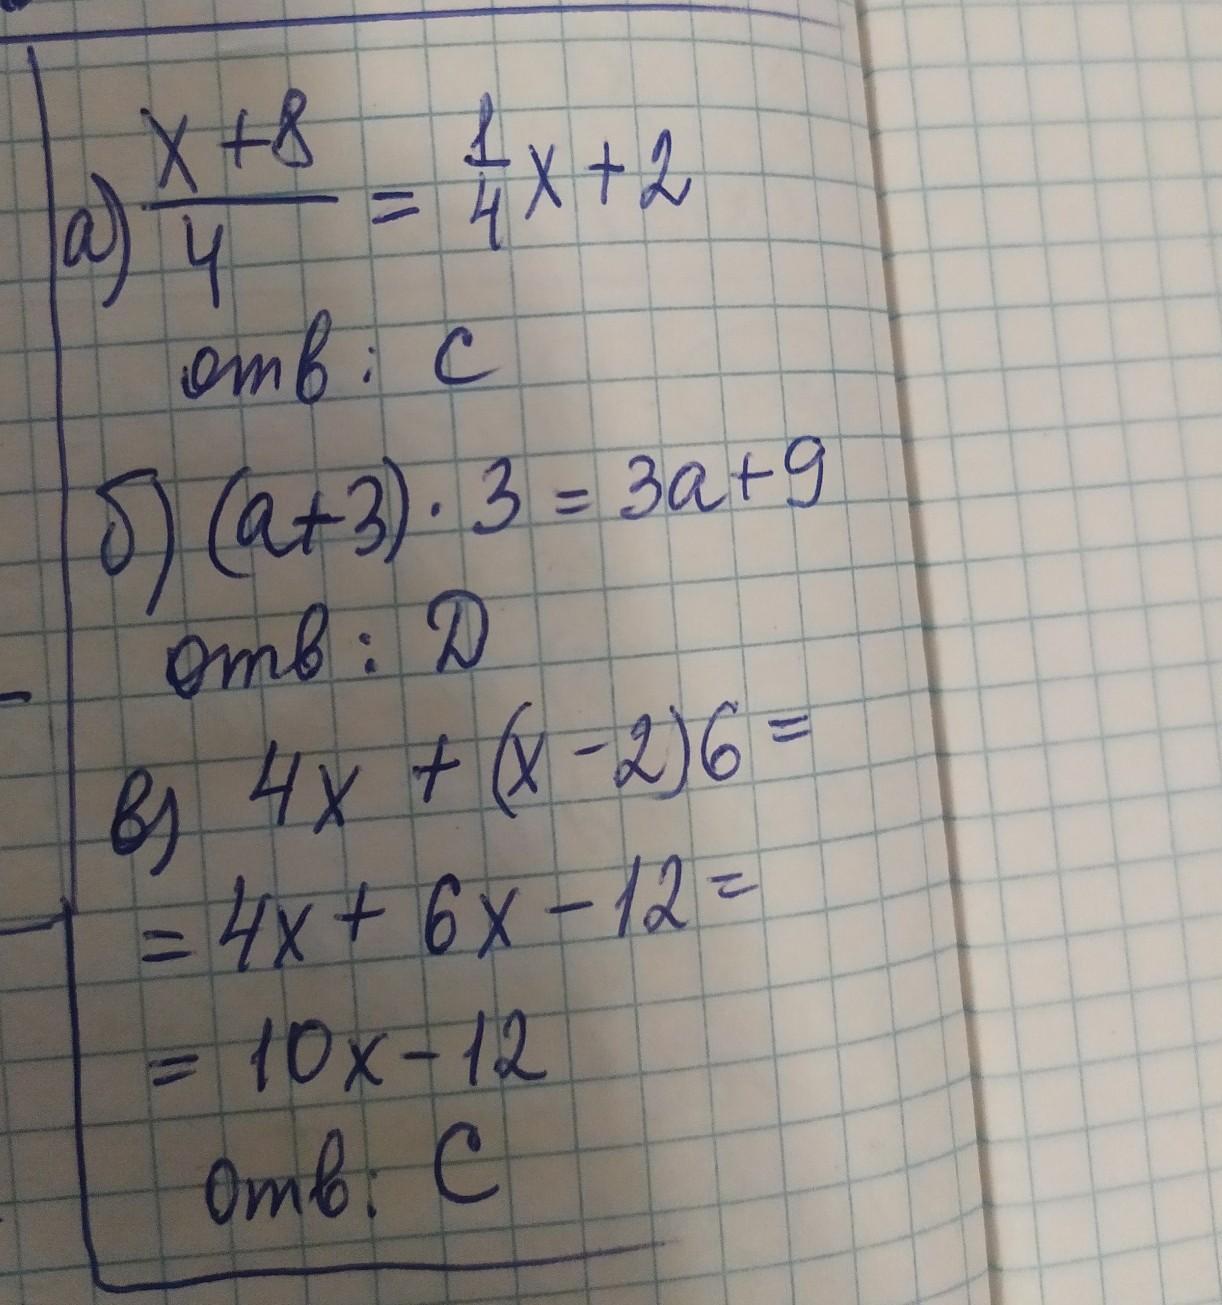 а) x + 8 / 4 = 1/4 x + 2
отв: C
б) (a+3) · 3 = 3a + 9
отв: D
в) 4x + (x - 2)6 =
= 4x + 6x - 12 =
= 10x - 12
отв: C